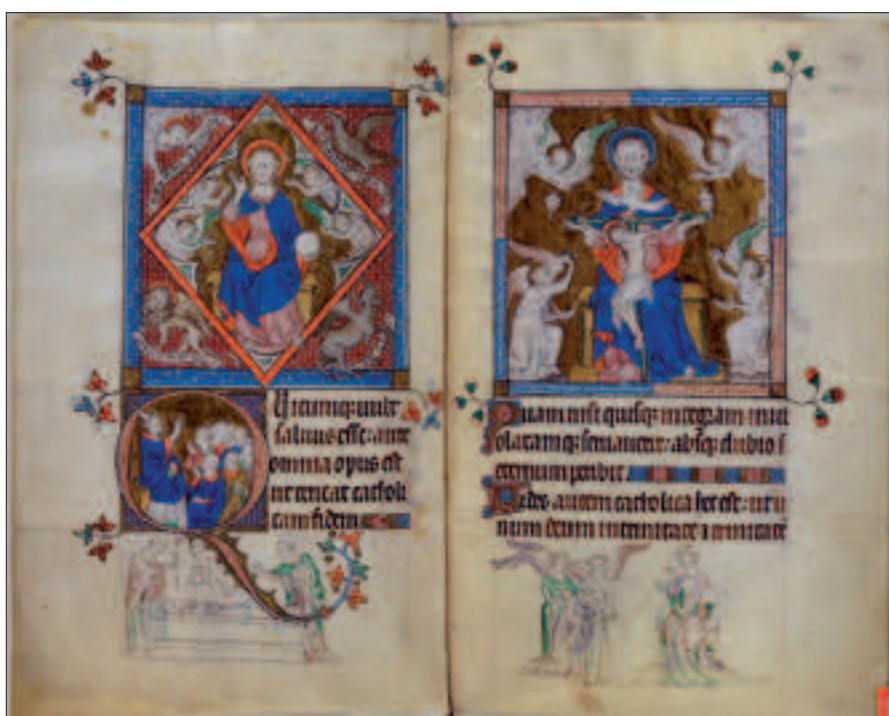 Quicumq; uult
saluus esse: ante
omnia opus est
ut teneat catholi
cam fidem
Quam nisi quisq; integram inui
olatamq; seruauerit: absq; dubio
eternum peribit.
Fides autem catholica hec est: ut u
num deum in trinitate